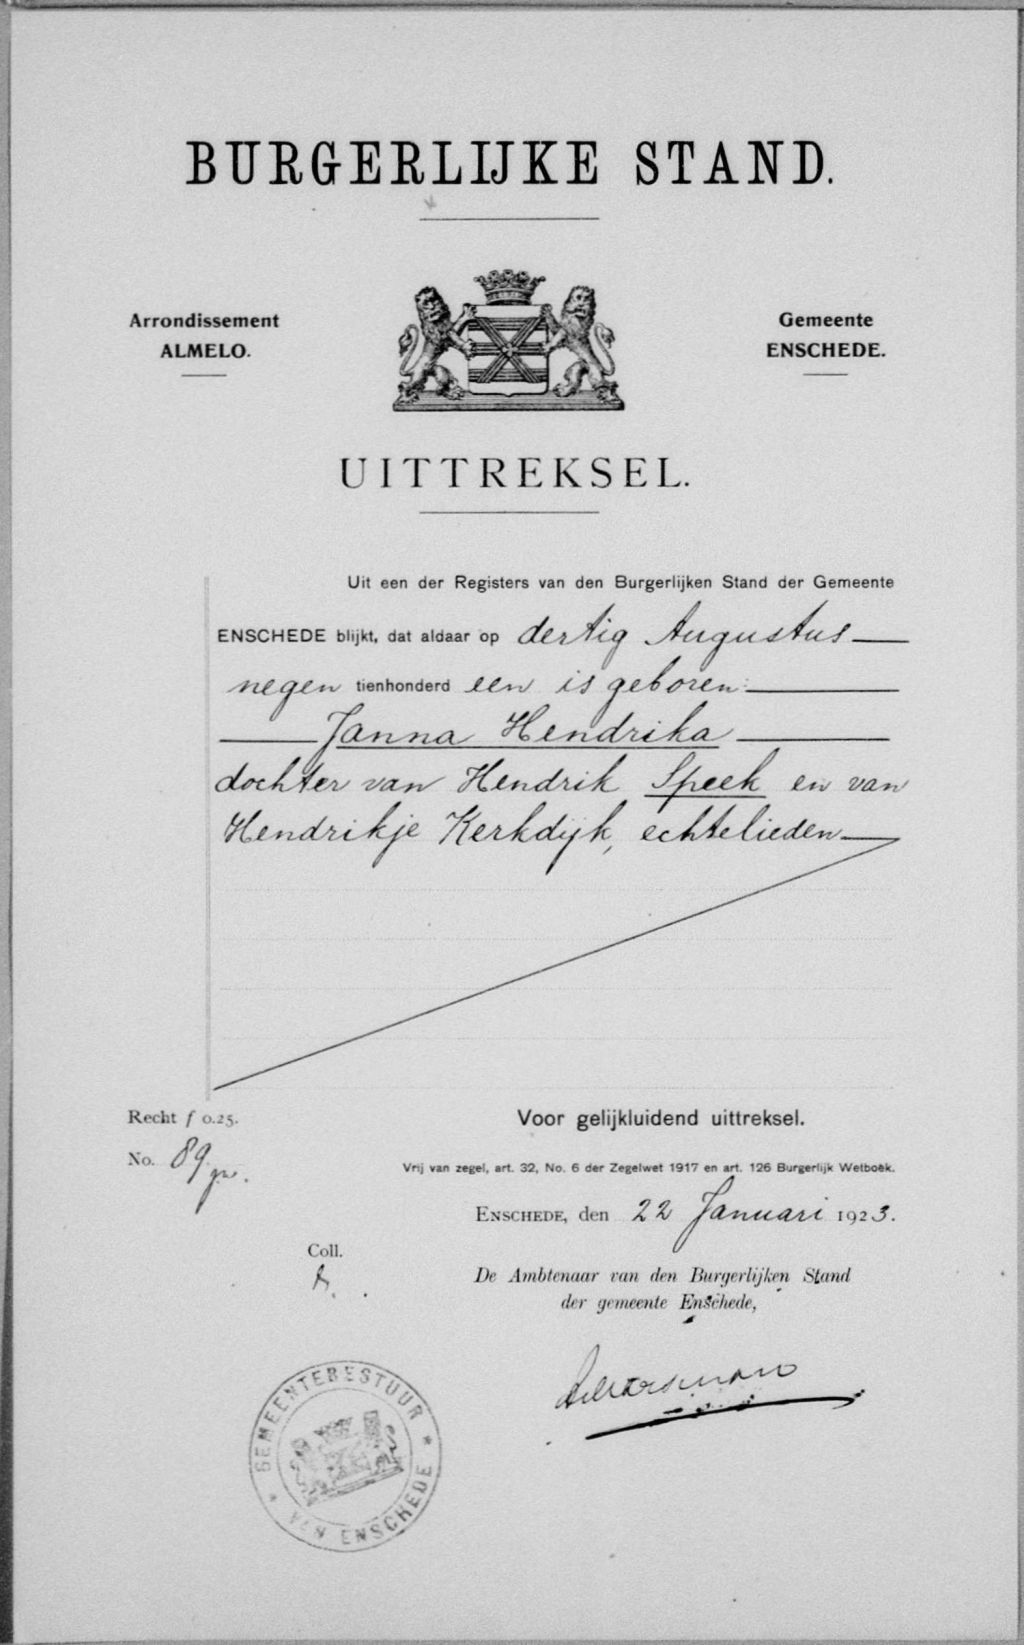 BURGERLIJKE STAND.
Arrondissement
ALMELO.
Gemeente
ENSCHEDE.
UITTREKSEL.
Uit een der Registers van den Burgerlijken Stand der Gemeente
ENSCHEDE blijkt, dat aldaar op dertig Augustus
negen tienhonderd een is geboren:
Janna Hendrika
dochter van Hendrik Speek en van
Hendrikje Kerkdijk, echtelieden
Recht f 0.25.
No. 89
Voor gelijkluidend uittreksel.
Vrij van zegel, art. 32, No. 6 der Zegelwet 1917 en art. 126 Burgerlijk Wetboek.
ENSCHEDE, den 22 Januari 1923.
Coll.
De Ambtenaar van den Burgerlijken Stand
der gemeente Enschede,
GEMEENTEBESTUUR
VAN ENSCHEDE